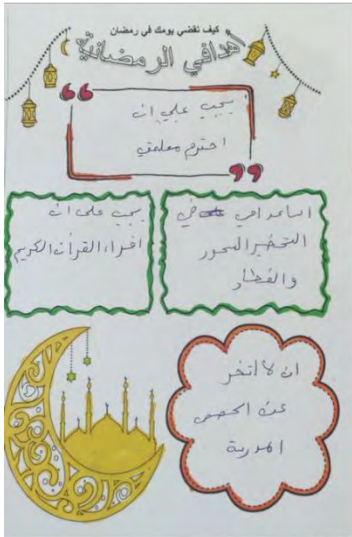 كيف تقضي يومك في رمضان
أهدافي الرمضانية
يجب علي ان
احترم معلمتي
اساعد امي في
التحضير السحور
والفطار
يجب على ان
اقراء القرأن الكريم
ان لا أتخر
عن الحصص
المدرية